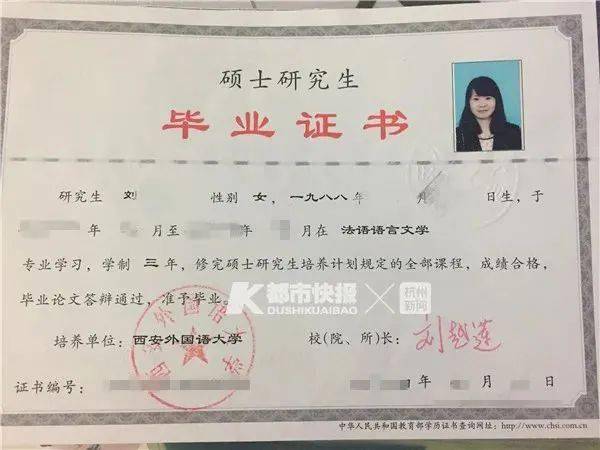 硕士研究生
毕业证书
研究生 刘 性别 女，一九八八年 月 日生，于
年 月至 年 月在 法语语言文学
专业学习，学制 三 年，修完硕士研究生培养计划规定的全部课程，成绩合格，
毕业论文答辩通过，准予毕业。
K都市快报 × 杭州新闻
DUSHIKUAIBAO
西安外国语大学
培养单位：西安外国语大学 校(院、所)长：刘越莲
证书编号： 年 月 日
中华人民共和国教育部学历证书查询网址：http://www.chsi.com.cn